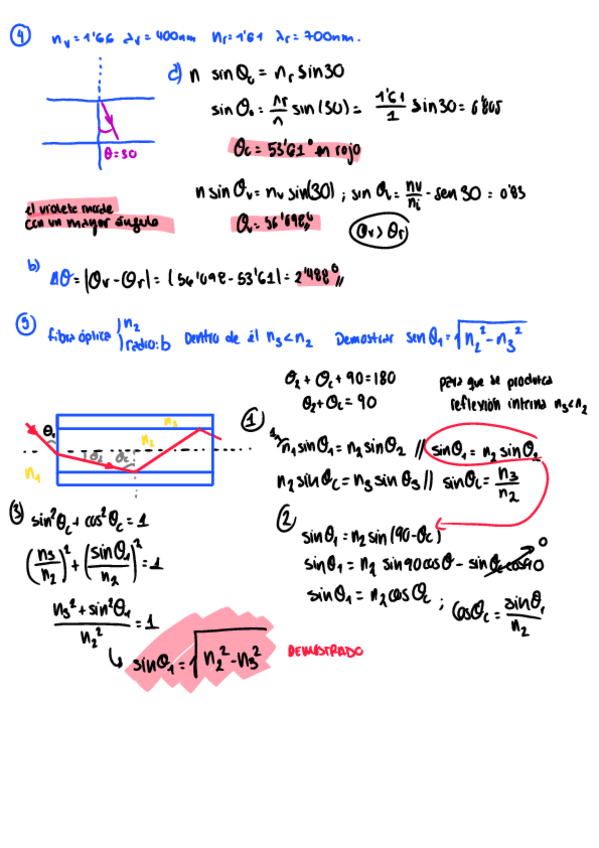 ④ nv = 1'66 λv = 400nm nr = 1'61 λr = 700nm.
d) n sinθc = nr sin30
sinθo = nr/n sin(30) = 1'61/1 sin30 = 0'805
θ = 30
θc = 53'61° en rojo
n sinθv = nv sin(30) ; sinθ = nv/ni - sen30 = 0'83
el violeta
con un mayor ángulo
θ = 56'098°//
θv > θr
b) Δθ = |θv - θr| = (56'098 - 53'61) = 2'488°//
⑤ fibra óptica n2
radio: b
Dentro de él n3 < n2 Demostrar senθ1 = √n2² - n3²
θ2 + θc + 90 = 180
θ2 + θc = 90
para que se produzca
reflexión interna n3 < n2
①
n3
θ1
n2
θ2 θc
n1
1 n1 sinθ1 = n2 sinθ2 // sinθ1 = n2 sinθ2
n2 sinθc = n3 sinθ3 // sinθc = n3/n2
②
sinθ1 = n2 sin(90 - θc)
sinθ1 = n2 sin90cosθ - sinθc cos90 0
sinθ1 = n2 cosθc ; cosθc = sinθ1/n2
③ sin²θc + cos²θc = 1
(n3/n2)² + (sinθ1/n2)² = 1
n3² + sin²θ1/n2² = 1
↳ sinθ1 = √n2² - n3² DEMOSTRADO